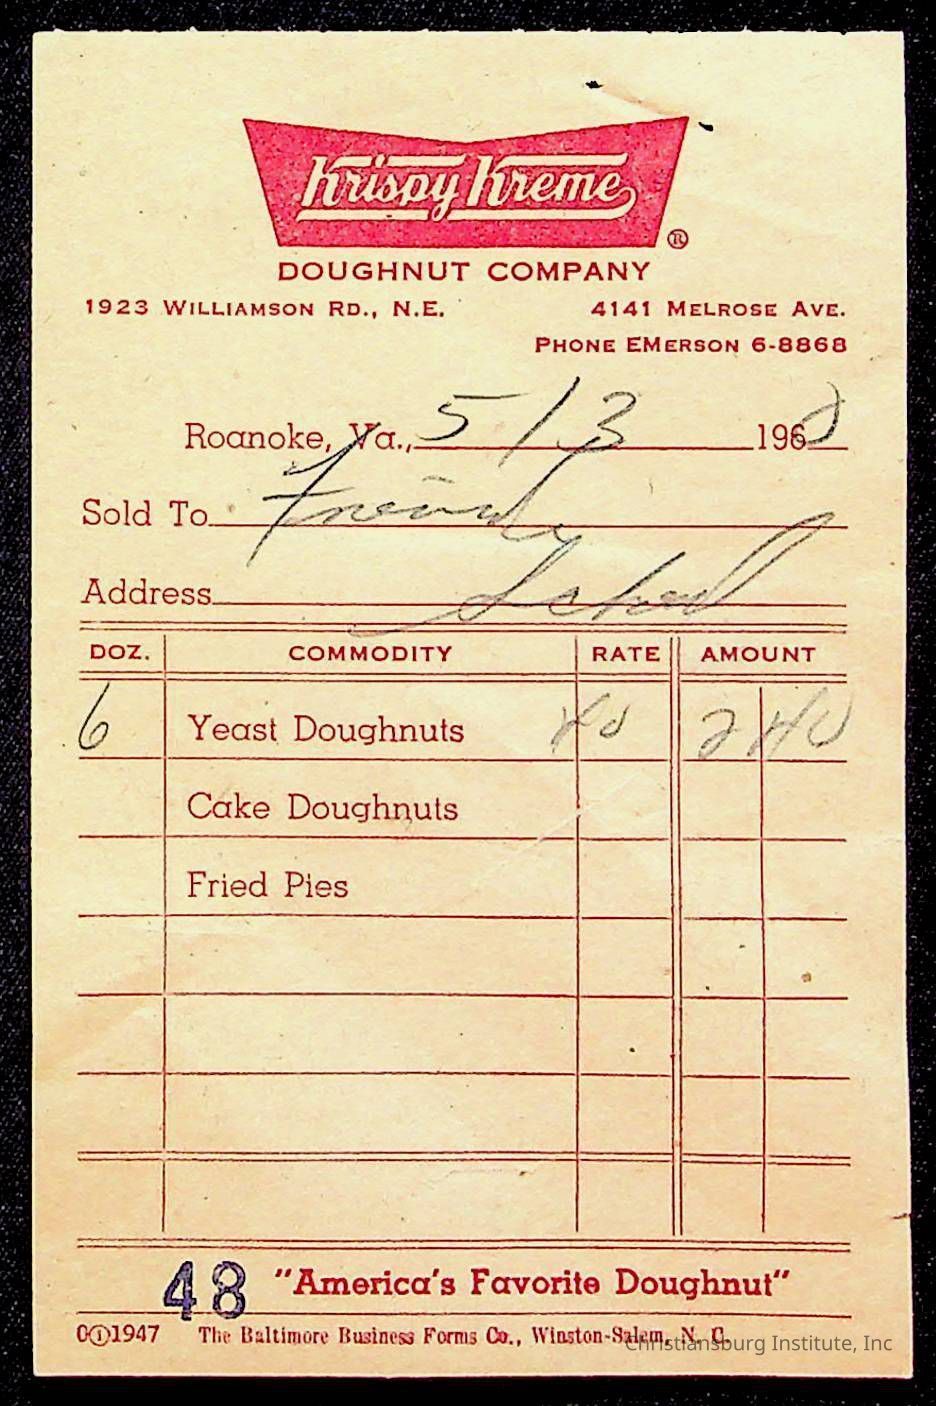 Krispy Kreme ®
DOUGHNUT COMPANY
1923 WILLIAMSON RD., N.E. 4141 MELROSE AVE.
PHONE EMERSON 6-8868
Roanoke, Va., 5/3 1968
Sold To Friendly
Address School
DOZ. COMMODITY RATE AMOUNT
6 Yeast Doughnuts 40 2 40
Cake Doughnuts
Fried Pies
48 "America's Favorite Doughnut"
1947 The Baltimore Business Forms Co., Winston-Salem, N. C.
Christiansburg Institute, Inc